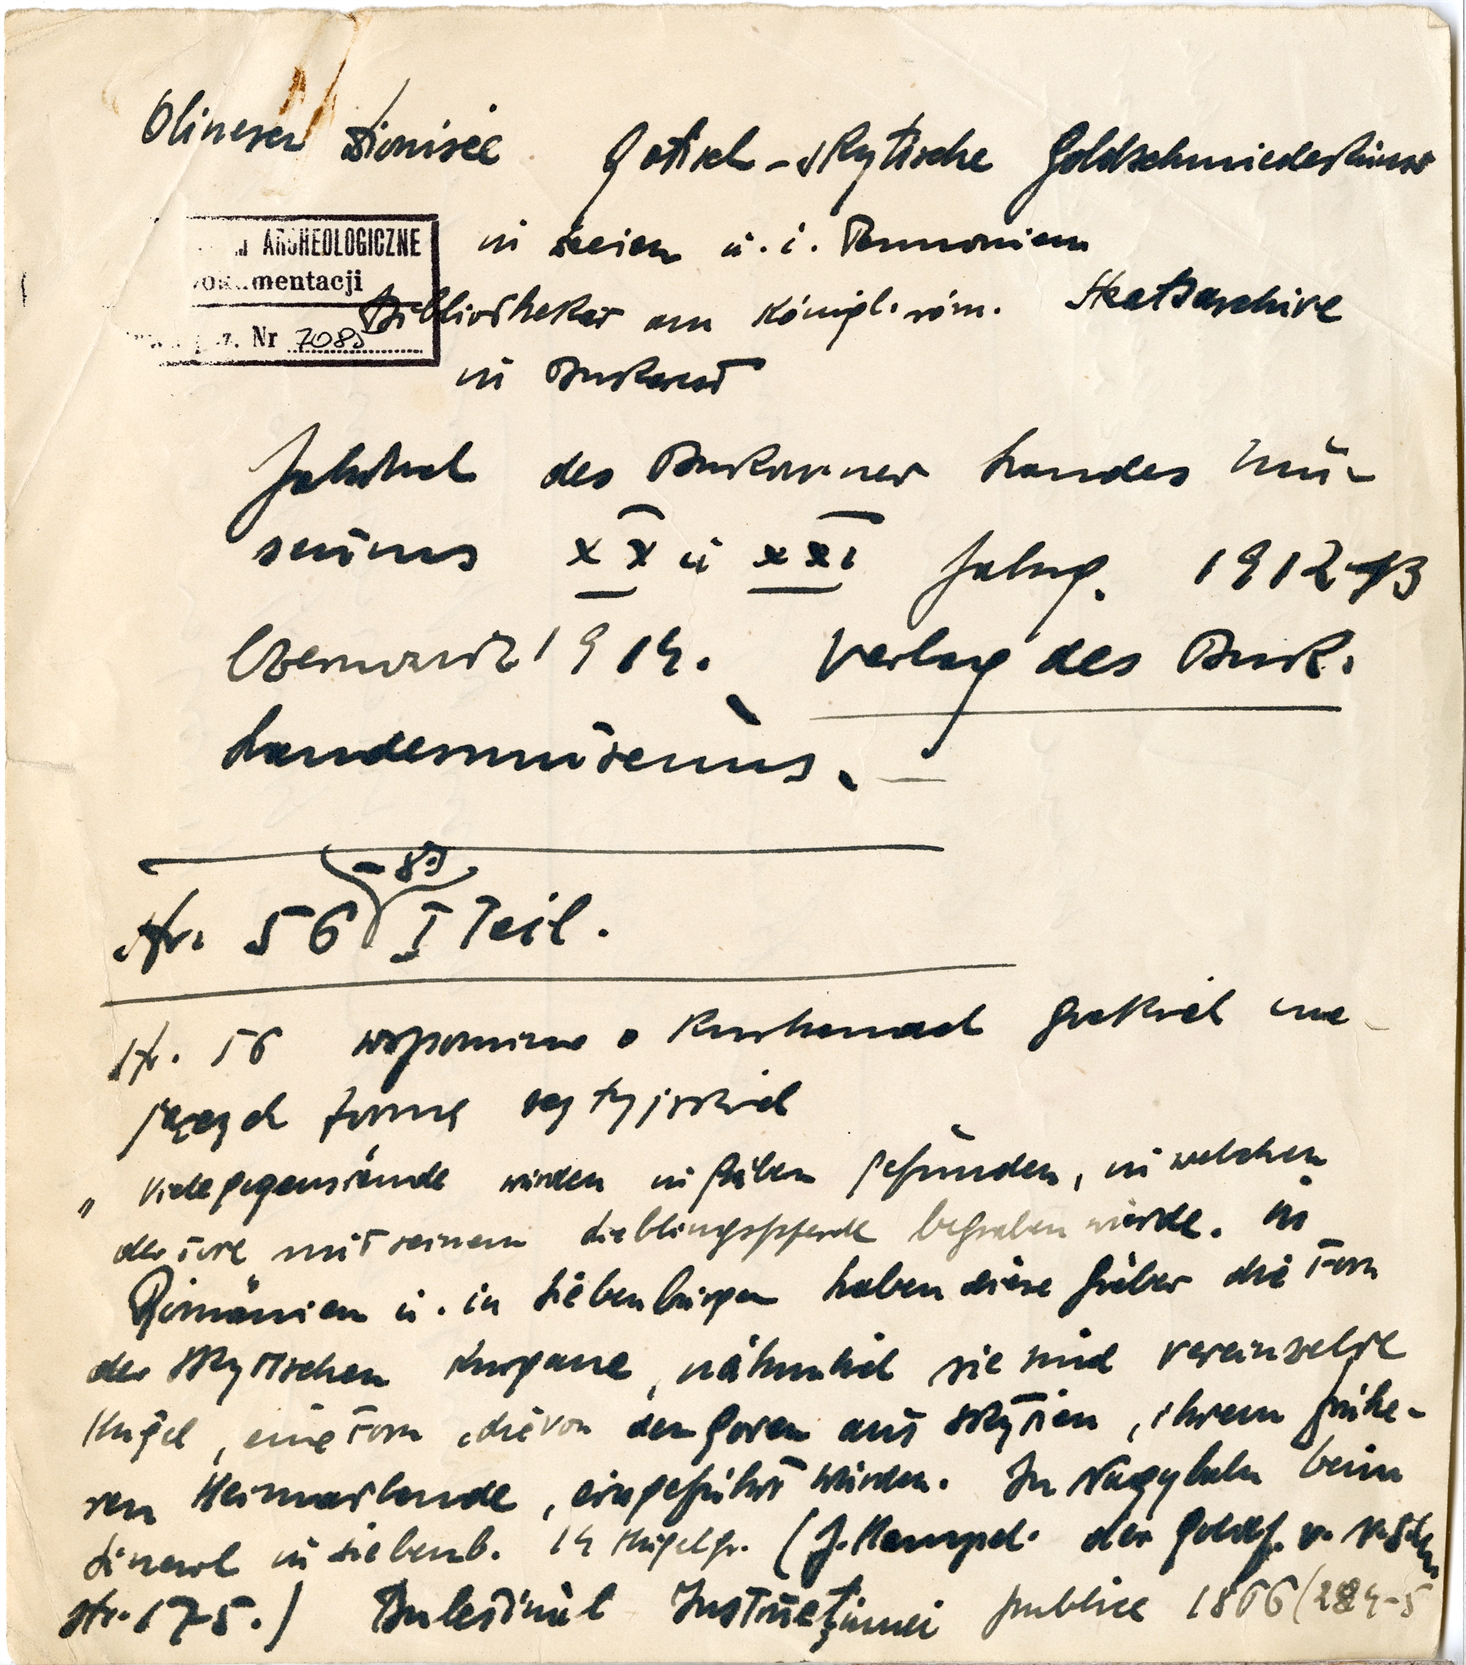 Olinescu Dionisie Gotisch-skytische Goldschmiedekunst
ARCHEOLOGICZNE
mentacji
Nr 7085
in u. i. Pannonien
Bibliothekar am königl. röm. Staatsarchive
in Bukarest
Jahrbuch des Bukowiner Landes Mu-
seums XX u XXI Jahrg. 1912-13
Czernowitz 1914. Verlag des Buk.
Landesmuseums. —
-89
Str. 56 I Teil.
str. 56 wspomina o kurhanach gockich ma-
jących formę scytyjskich
" Viele gegenstände wurden in gräben gefunden, in welchen
der tote mit seinem Lieblingspferde begraben wurde. In
Rumänien u. in Siebenbürgen haben diese Gräber die Form
der skytischen Kurgane, nähmlich sie sind vereinzelte
Hügel, eine Form, die von den Goten aus Skytien, ihrem frühe-
ren Heimatlande, eingeführt wurden. In Nagy beim
in Siebenb. 14 Hügelgr. (J. Hampel. der Goldf. v.
str. 175.) Buletinul Instrucţiunei publice 1866 (284-5